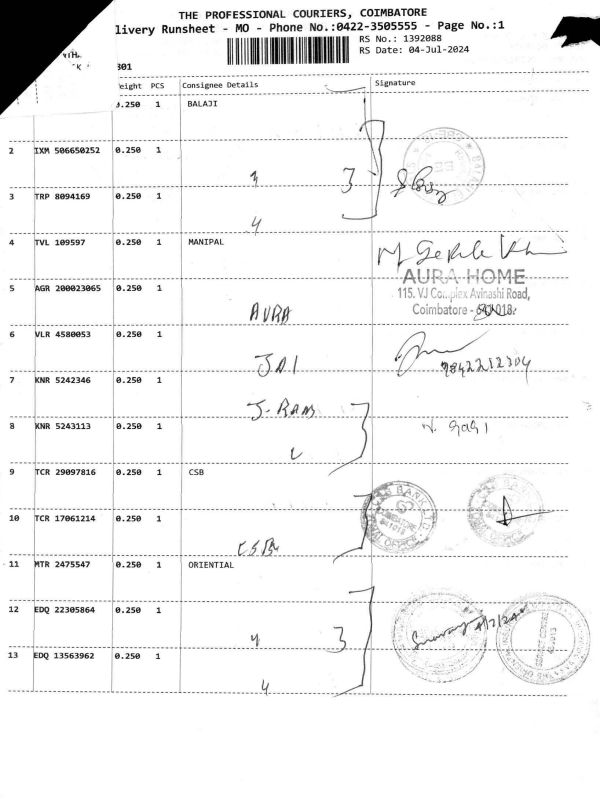 THE PROFESSIONAL COURIERS, COIMBATORE
livery Runsheet - MO - Phone No.:0422-3505555 - Page No.:1
RS No.: 1392088
RS Date: 04-Jul-2024
801
eight PCS Consignee Details Signature
0.250 1 BALAJI
2 IXM 506650252 0.250 1
3 3
3 TRP 8094169 0.250 1
4
4 TVL 109597 0.250 1 MANIPAL
AURA HOME
5 AGR 200023065 0.250 1
115. VJ Complex Avinashi Road,
Coimbatore - 018.
AURA
6 VLR 4580053 0.250 1
JAI
9842212304
7 KNR 5242346 0.250 1
J-RAM
8 KNR 5243113 0.250 1
9 TCR 29097816 0.250 1 CSB
BANK LTD
10 TCR 17061214 0.250 1
CSB
11 MTR 2475547 0.250 1 ORIENTIAL
12 EDQ 22305864 0.250 1
SERVICE CENTRE
4 3
13 EDQ 13563962 0.250 1
4